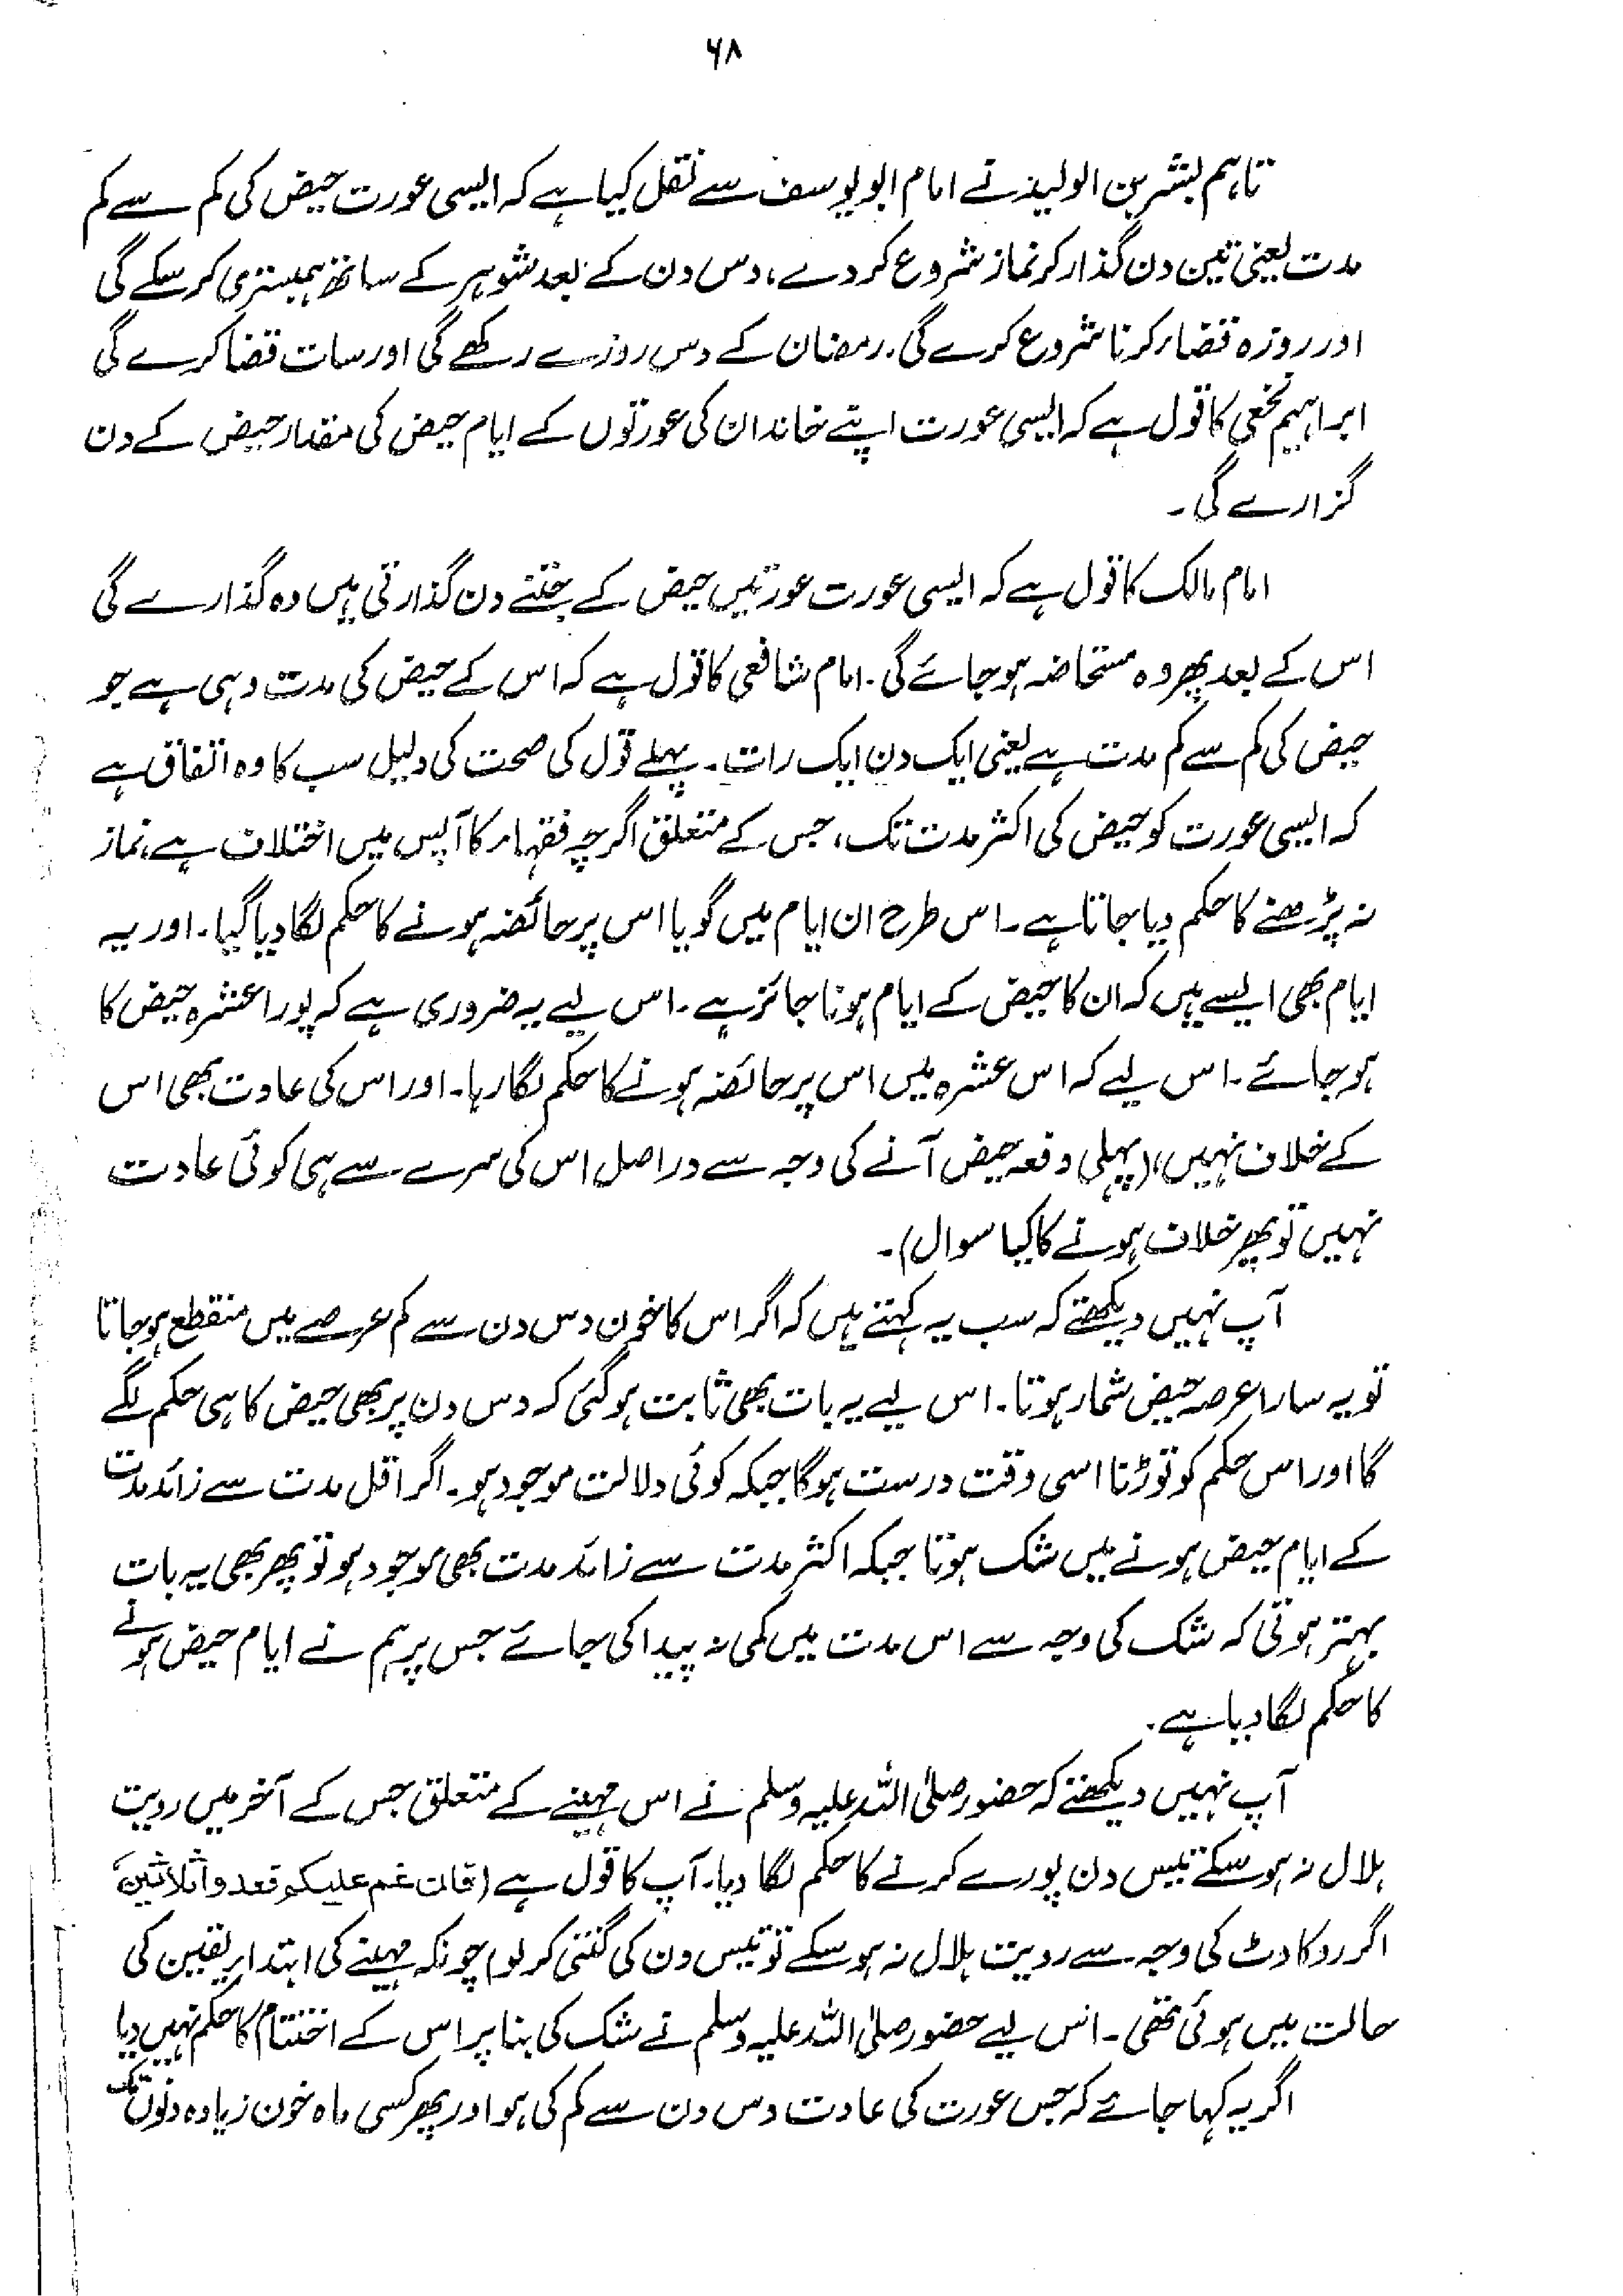 ۶۸
تاہم بشر بن الولید نے امام ابو یوسف سے نقل کیا ہے کہ ایسی عورت حیض کی کم سے کم
مدت یعنی تین دن گذار کر نماز شروع کر دے، دس دن کے بعد شوہر کے ساتھ ہمبستری کر سکے گی
اور روزہ قضاء کرنا شروع کرے گی۔ رمضان کے دس روزے رکھے گی اور سات قضا کرے گی
ابراہیم نخعی کا قول ہے کہ ایسی عورت اپنے خاندان کی عورتوں کے ایام حیض کی مقدار حیض کے دن
گزارے گی۔
امام مالک کا قول ہے کہ ایسی عورت عورتیں حیض کے جتنے دن گذارتی ہیں وہ گذارے گی
اس کے بعد پھر وہ مستحاضہ ہو جائے گی۔ امام شافعی کا قول ہے کہ اس کے حیض کی مدت وہی ہے جو
حیض کی کم سے کم مدت ہے یعنی ایک دن ایک رات۔ پہلے قول کی صحت کی دلیل سب کا وہ اتفاق ہے
کہ ایسی عورت کو حیض کی اکثر مدت تک، جس کے متعلق اگرچہ فقہاء کا آپس میں اختلاف ہے، نماز
نہ پڑھنے کا حکم دیا جاتا ہے۔ اس طرح ان ایام میں گویا اس پر حائضہ ہونے کا حکم لگا دیا گیا۔ اور یہ
ایام بھی ایسے ہیں کہ ان کا حیض کے ایام ہونا جائز ہے۔ اس لیے یہ ضروری ہے کہ پورا عشرہ حیض کا
ہو جائے۔ اس لیے کہ اس عشرہ میں اس پر حائضہ ہونے کا حکم لگا رہا۔ اور اس کی عادت بھی اس
کے خلاف نہیں، (پہلی دفعہ حیض آنے کی وجہ سے دراصل اس کی سرے سے ہی کوئی عادت
نہیں تو پھر خلاف ہونے کا کیا سوال)۔
آپ نہیں دیکھتے کہ سب یہ کہتے ہیں کہ اگر اس کا خون دس دن سے کم عرصے میں منقطع ہو جاتا
تو یہ سارا عرصہ حیض شمار ہوتا۔ اس لیے یہ بات بھی ثابت ہو گئی کہ دس دن پر بھی حیض کا ہی حکم لگے
گا اور اس حکم کو توڑنا اسی وقت درست ہوگا جبکہ کوئی دلالت موجود ہو۔ اگر اقل مدت سے زائد مدت
کے ایام حیض ہونے میں شک ہوتا جبکہ اکثر مدت سے زائد مدت بھی موجود ہو تو پھر بھی یہ بات
بہتر ہوتی کہ شک کی وجہ سے اس مدت میں کمی نہ پیدا کی جائے جس پر ہم نے ایام حیض ہونے
کا حکم لگا دیا ہے۔
آپ نہیں دیکھتے کہ حضور صلی اللہ علیہ وسلم نے اس مہینے کے متعلق جس کے آخر میں رویت
ہلال نہ ہو سکے تیس دن پورے کرنے کا حکم لگا دیا۔ آپ کا قول ہے (فان غم علیکم فعدوا ثلاثین،
اگر رکاوٹ کی وجہ سے رویت ہلال نہ ہو سکے تو تیس دن کی گنتی کر لو) چونکہ مہینے کی ابتداء یقین کی
حالت میں ہوئی تھی۔ اس لیے حضور صلی اللہ علیہ وسلم نے شک کی بنا پر اس کے اختتام کا حکم نہیں دیا
اگر یہ کہا جائے کہ جس عورت کی عادت دس دن سے کم کی ہو اور پھر کسی ماہ خون زیادہ دنوں تک